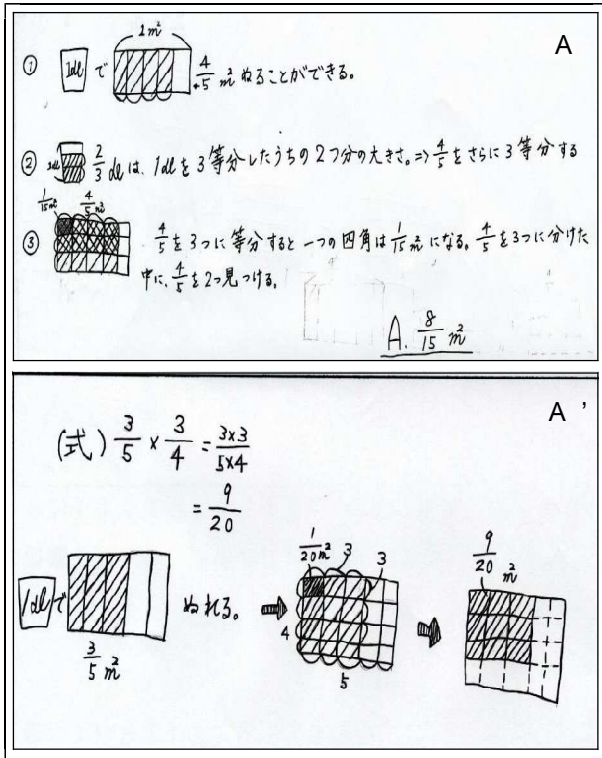 A
1m²
① 1dlで 4/5 m² ぬることができる。
② 2/3 dlは、1dlを3等分したうちの2つ分の大きさ。⇒4/5をさらに3等分する
1/15m² 4/5m²
③ 4/5を3つに等分すると一つの四角は1/15m²になる。4/5を3つに分けた
中に、4/5を2つ見つける。
A. 8/15 m²
A '
(式) 3/5 × 3/4 = 3×3/5×4
= 9/20
1dlで 3/5 m² ぬれる。
1/20m² 3 3
4
5
9/20 m²